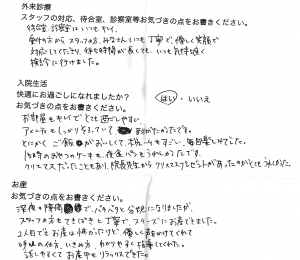 外来診療
スタッフの対応、待合室、診察室等お気づきの点をお書きください。
待合室、診察室はいつもキレイ。
受付の方から、スタッフの方、みなさんいつも丁寧で、優しく笑顔で
対応してくださり、待ち時間が長くても、いつも気持ち良く
検診に行けました。
入院生活
快適にお過ごしになれましたか? はい・いいえ
お気づきの点をお書きください。
お部屋もキレイでとても過ごしやすい。
アメニティもしっかりそろっていて ありがたかったです。
とにかく ご飯 がおいしくて、ボリュームもすごい、毎回楽しみでした。
15時のおやつのケーキも、夜食パンもうれしかったです。
クリスマスだったこともあり、院長先生からクリスマスプレゼントがあったのがとてもうれしかった。
お産
お気づきの点をお書きください。
深夜の陣痛 で、バタバタと分娩になりましたが、
スタッフの方もてきぱきと丁寧で、スムーズにお産できました。
2人目でもお産は怖かったけど、優しく声かけしてくれて
呼吸の仕方、いきみ方、わかりやすく指導してくれた。
話しやすくてお産中もリラックスできた。